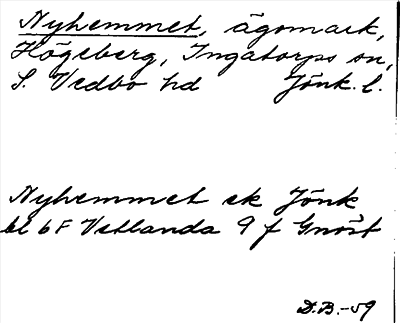 Nyhemmet, ägomark,
Högeberg, Ingatorps sn,
S. Vedbo hd Jönk. l.
Nyhemmet ek Jönk
bl 6 F Vetlanda 9 f Gnöst
D.B.-59